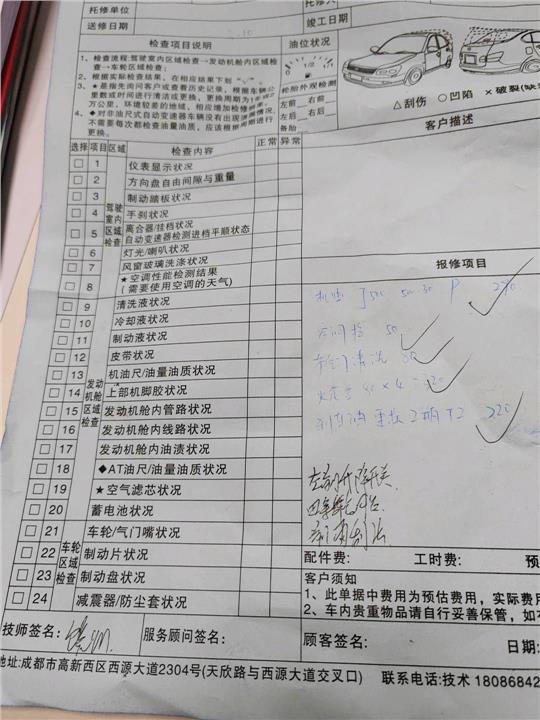 托修单位
送修日期
竣工日期
检查项目说明
油位状况
1、检查流程:驾驶室内区域检查→发动机舱内区域检查→车轮区域检查;
2、根据实际检查结果,在相应结果下划
3、★是指先询问客户或查看历史记录,根据车辆公里数或时间进行清洁或更换,更换周期为1年或2万公里,环境较差的地域,相应增加检修频率;
4、◆对非油尺式自动变速器车辆没有出现渗漏情况,不需要每次都检查油量油质,应该根据周期进行更换。
轮胎外观检测
左前 右前
左后 右后
备胎
△刮伤 ○凹陷 ×破裂(缺
客户描述
选择 项目 区域 检查内容 正常 异常
驾驶室内区域检查
1 仪表显示状况
2 方向盘自由间隙与重量
3 制动踏板状况
4 手刹状况
5 离合器/挂档状况
自动变速器检测进档平顺状态
6 灯光/喇叭状况
7 风窗玻璃洗涤状况
8 ★空调性能检测结果
(需要使用空调的天气)
发动机舱区域检查
9 清洗液状况
10 冷却液状况
11 制动液状况
12 皮带状况
13 机油尺/油量油质状况
14 上部机脚胶状况
15 发动机舱内管路状况
16 发动机舱内线路状况
17 发动机舱内油渍状况
18 ◆AT油尺/油量油质状况
19 ★空气滤芯状况
20 蓄电池状况
车轮区域检查
21 车轮/气门嘴状况
22 制动片状况
23 制动盘状况
24 减震器/防尘套状况
报修项目
50
80
220
配件费: 工时费: 预
客户须知
1、此单据中费用为预估费用,实际费用
2、车内贵重物品请自行妥善保管,如
技师签名:
服务顾问签名:
顾客签名:
日期:
地址:成都市高新西区西源大道2304号(天欣路与西源大道交叉口) 联系电话:技术 18086842